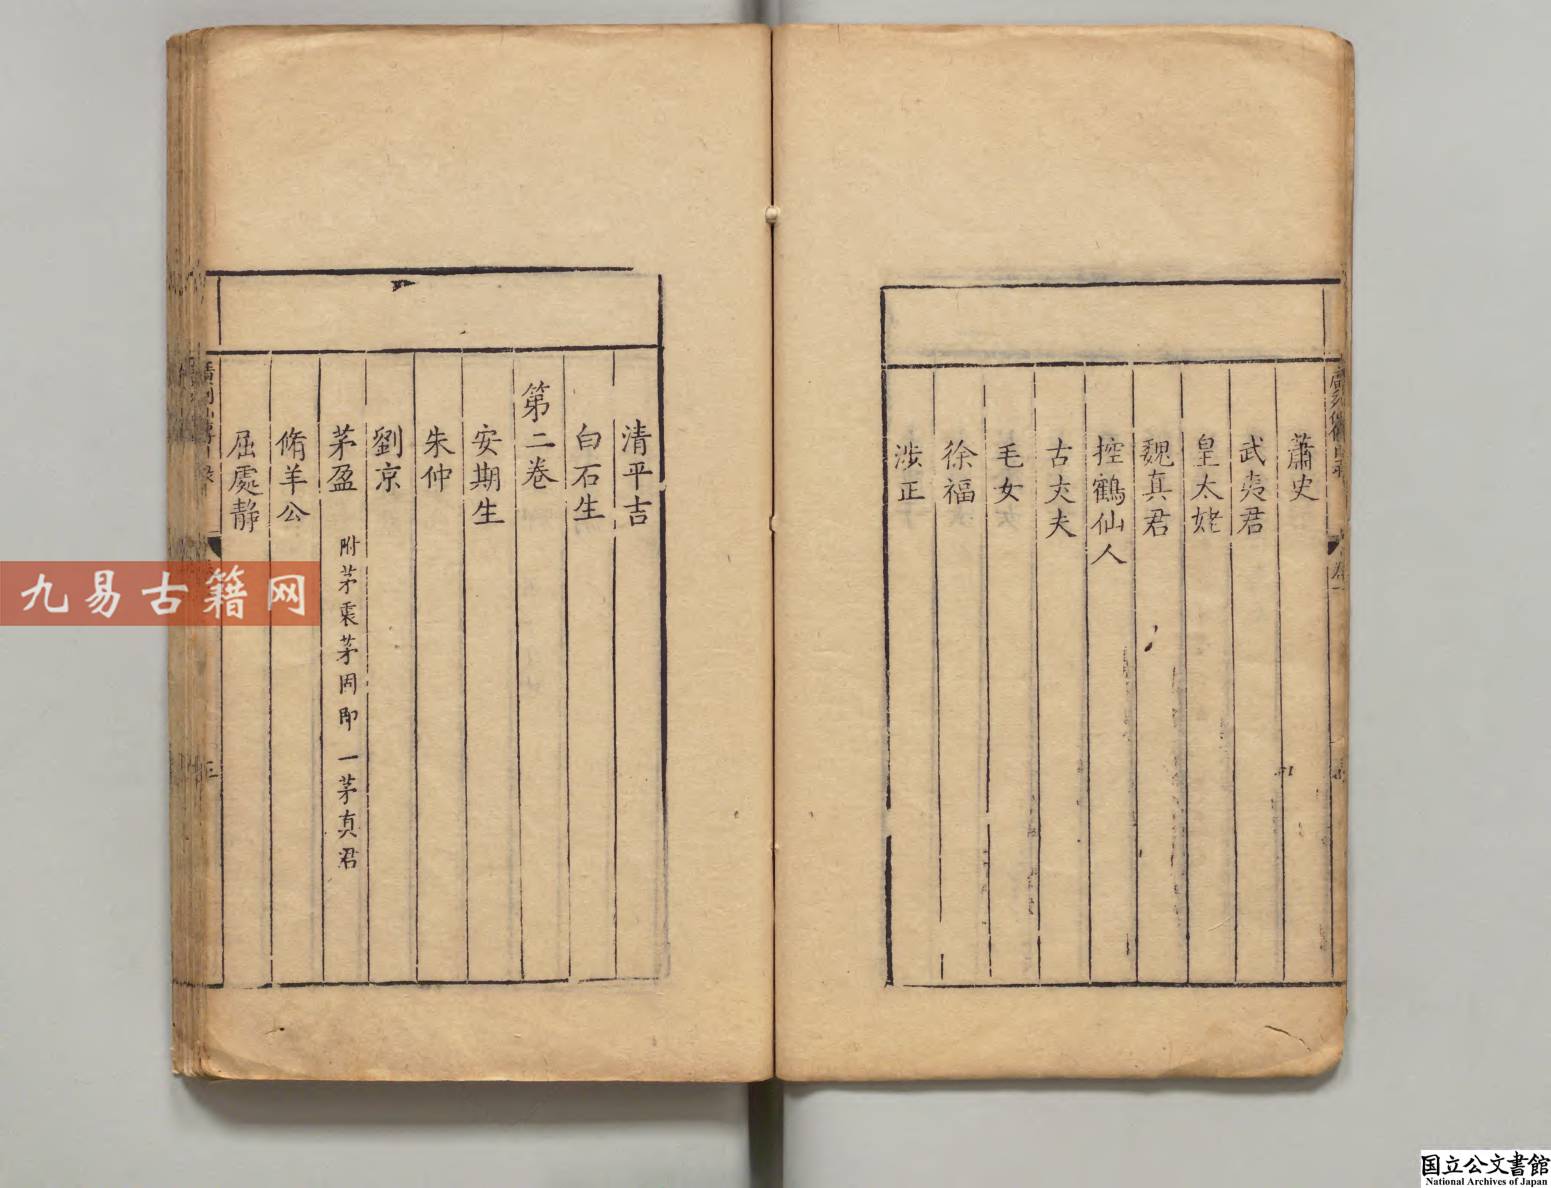 蕭史
武夷君
皇太姥
魏真君
控鶴仙人
古丈夫
毛女
徐福
涉正
清平吉
白石生
第二卷
安期生
朱仲
劉京
茅盈 附茅衷茅固即一茅真君
脩羊公
屈處靜
九易古籍网
国立公文書館
National Archives of Japan